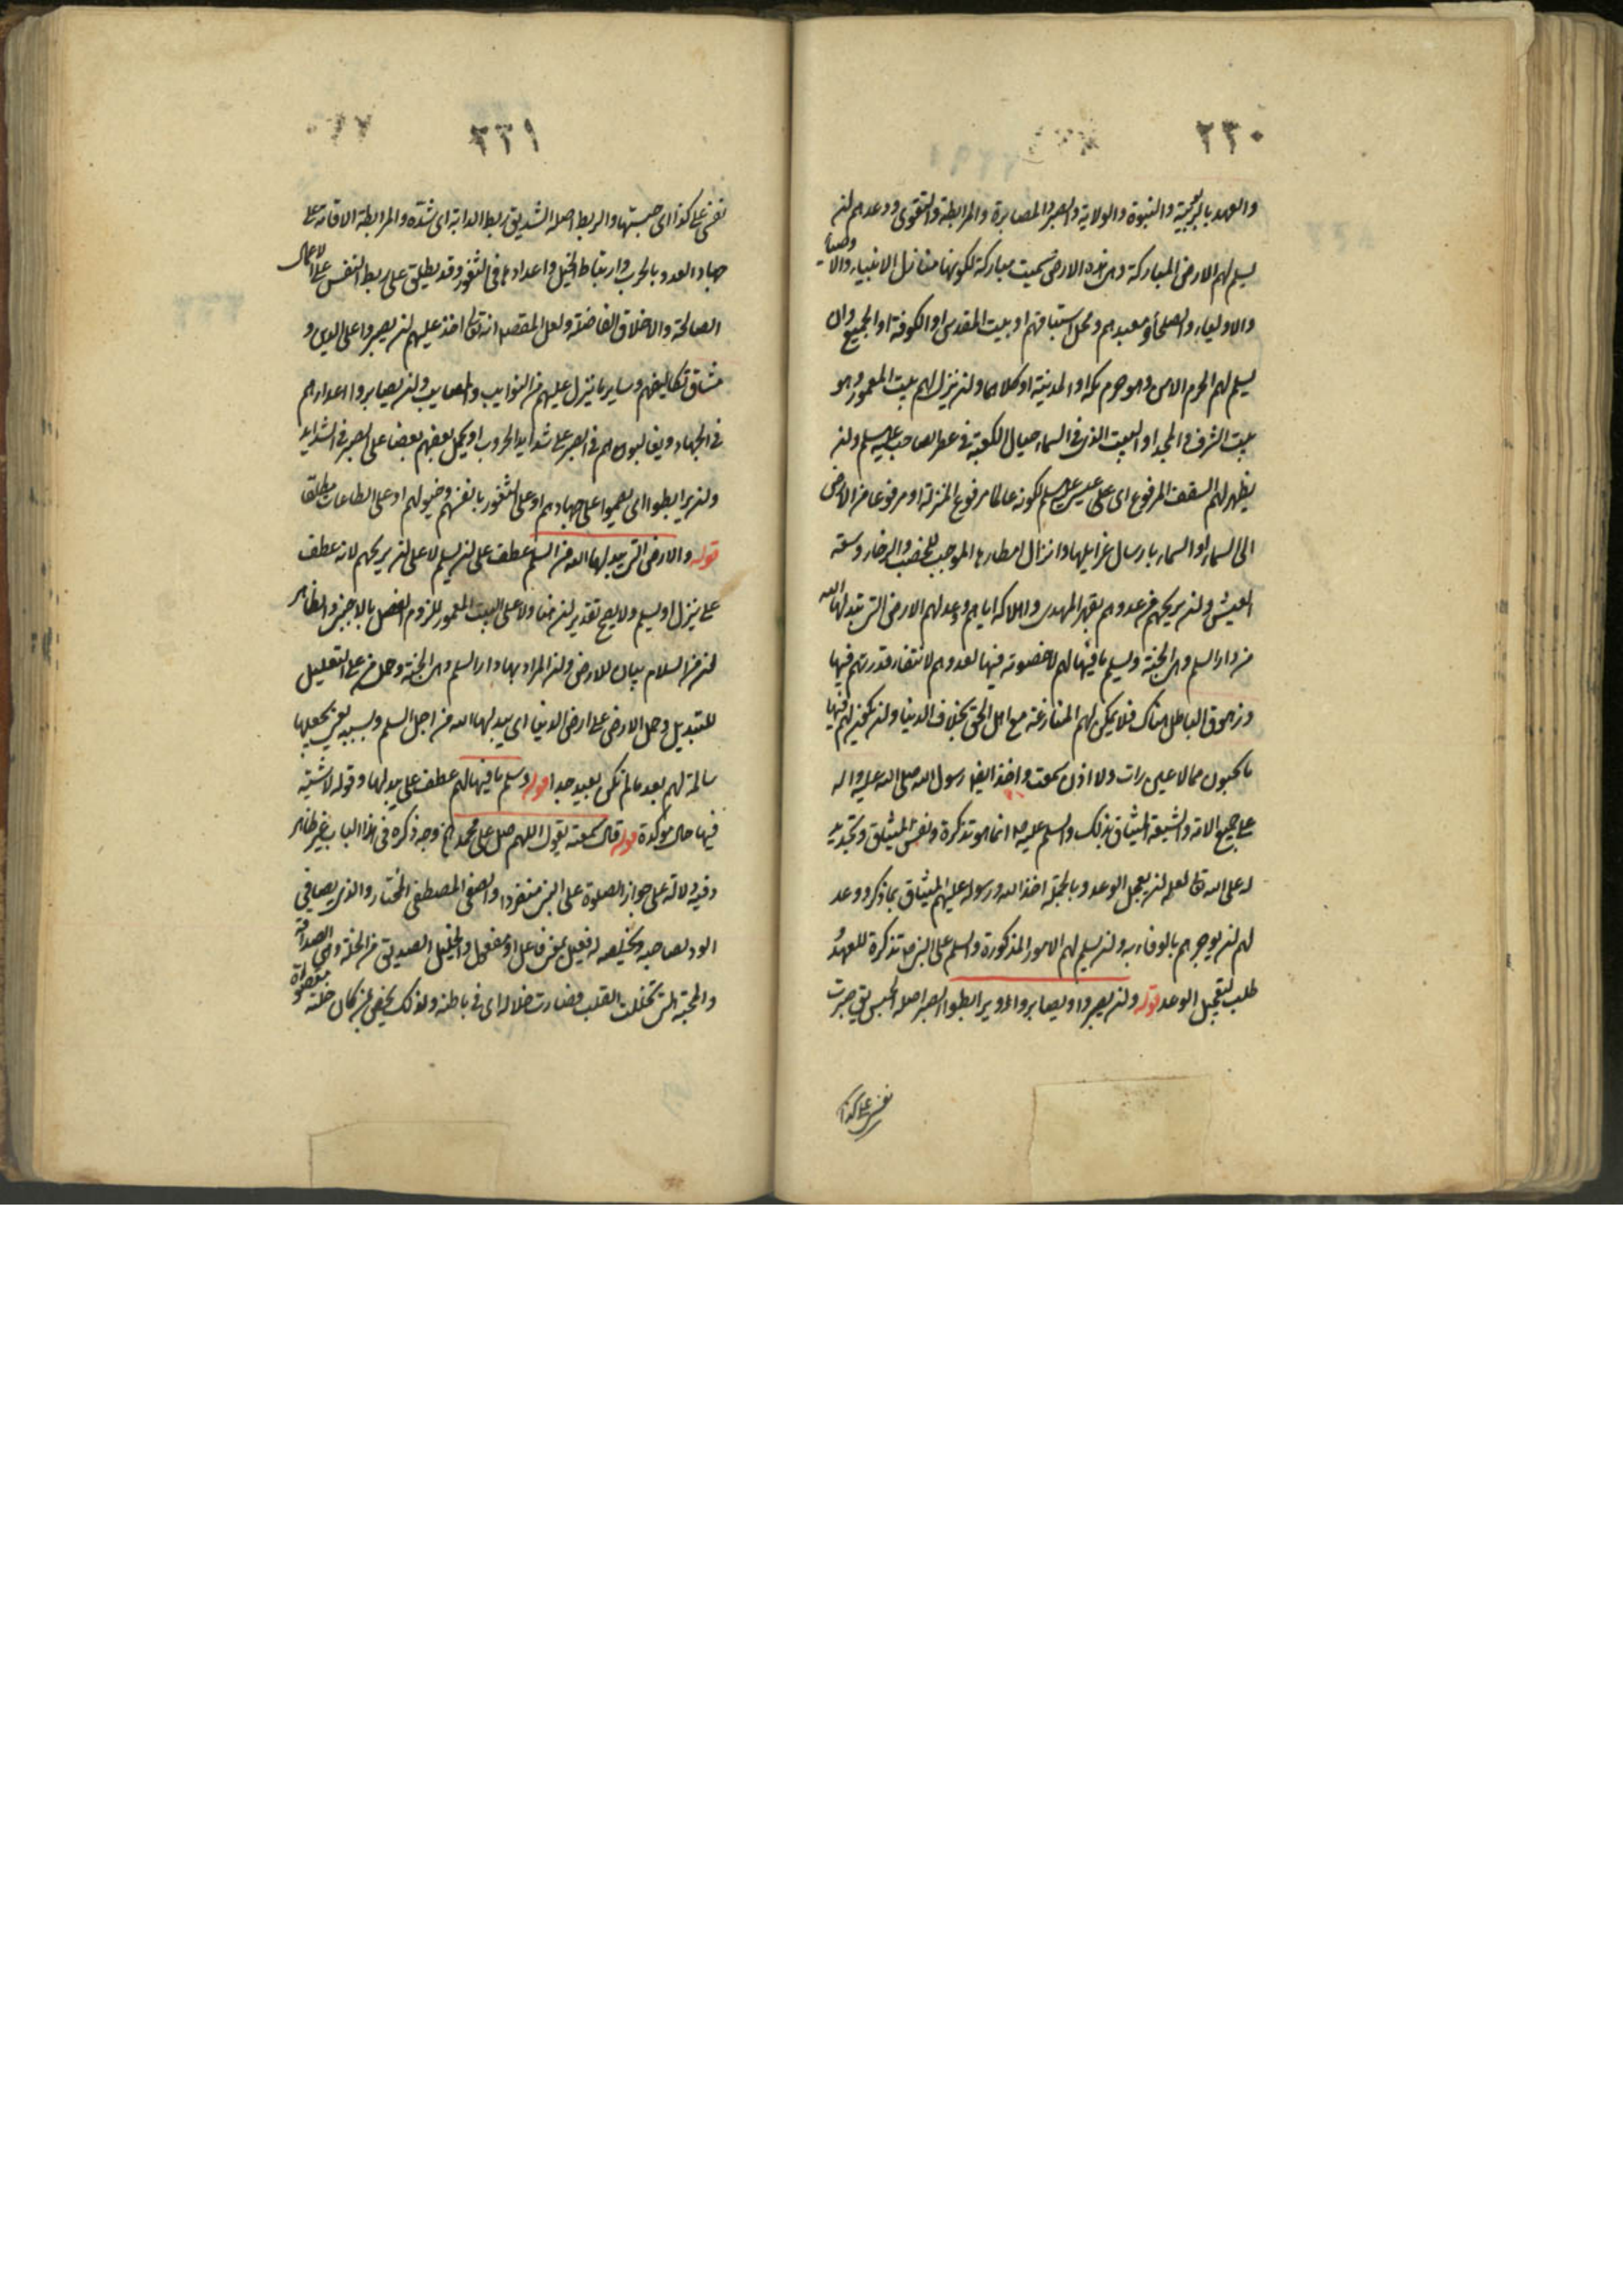 ٢٣٠
والعهد بالربوبية والنبوة والولاية والصبر والمصابرة والمرابطة والتقوى ووعدهم لن
يسلم لهم الارض المباركة وهى هذه الارض سميت مباركة لكونها منازل الانبياء والاوصياء
والاولياء والصلحاء ومعبدهم ومحل استباقهم او بيت المقدس او الكوفة او الجميع وان
يسلم لهم الحرم الامن وهو حرم مكة او المدينة او كلاهما ولن ينزل لهم بيت المعمور وهو
بيت الشرف والمجد او البيت الذى فى السماء حيال الكعبة فى عصر الصاحب عليه السلم ولن
يظهر لهم السقف المرفوع اى على عيسى عليه السلم لكونه عالما مرفوع المنزلة او مرفوعا من الارض
الى السماء او السماء بارسال عزاليها وانزال امطارها الموجب للخصب والرخاء وسعة
العيش ولن يريحهم من عدوهم بقهر المهدى واهلاكه اياهم وعد لهم الارض التى تبدلها الله
من دار السلم وهى الجنة ويسلم ما فيها لهم لا خصومة فيها لعدوهم لانتفاء قدرتهم فيها
وزهوق الباطل هناك فلا يمكن لهم المنازعة مع اهل الحق بخلاف الدنيا ولن يكون لهم فيها
ما يحبون مما لا عين رات ولا اذن سمعت واخذ ايضا رسول الله صلى الله عليه واله
على جميع الامة والشيعة الميثاق بذلك والسلم عليه انما هو تذكرة ونفس الميثاق وتجديد
له على الله تعالى لعله لن يعجل الوعد وبالجملة اخذ الله ورسوله عليهم الميثاق بما ذكر ووعد
لهم لن يوجرهم بالوفاء به ولن يسلم لهم الامور المذكورة والسلم على النبى ص تذكرة للعهد و
طلب لتعجيل الوعد قوله ولن يصبروا ويصابروا ويرابطوا الصبر اصله الحبس يق صبرت
نفسى على كذا
٢٣١
نفسى على كذا اى حبستها والربط اصله الشد يق ربط الدابة اى شدّه والمرابطة الاقامة على
جهاد العدو بالحرب وارتباط الخيل واعدادها فى الثغور وقد يطلق على ربط النفس على الاعمال
الصالحة والاخلاق الفاضلة ولعل المقصد انه تعالى اخذ عليهم لن يصبروا على الدين و
مشاق تكاليفهم وساير ما ينزل عليهم من النوايب والمصايب ولن يصابروا اعداءهم
فى الجهاد ويغالبوهم فى الصبر على شدايد الحروب او يحمل بعضهم بعضا على الصبر فى الشدايد
ولن يرابطوا اى يقيموا على جهادهم او على الثغور بانفسهم وخيولهم او على الطاعات مطلقا
قوله والارض التى يبدلها الله من السلم عطف على لن يسلم لا على لن يريحهم لانه عطف
على ينزل او يسلم ولا يصح تقدير لن هنا ولا على البيت المعمور للزوم الفصل بالاجنبى والظاهر
لن من السلام بيان للارض ولن المراد بها دار السلم وهى الجنة وحمل من على التعليل
للتبديل وحمل الارض على ارض الدنيا اى يبدلها الله من اجل السلم وبسببه يعنى يجعلها
سالمة لهم بعد ما لم تكن بعيد جدا قوله ويسلم ما فيها لهم عطف على يبدلها وقوله لا شية
فيها حال موكدة قوله قال سمعته يقول اللهم صل على محمد الخ وجه ذكره فى هذا الباب غير ظاهر
وفيه دلالة على جواز الصلوة على النبى منفردا والصفى المصطفى المختار والذى يصافى
الود لصاحبه ويخلصه له فعيل بمعنى فاعل او مفعول والخليل الصديق من الخلة وهى الصداقة
والمحبة التى تخللت القلب فصارت خلاله اى فى باطنه ولذلك يخص بمن كان خلته مقصورة